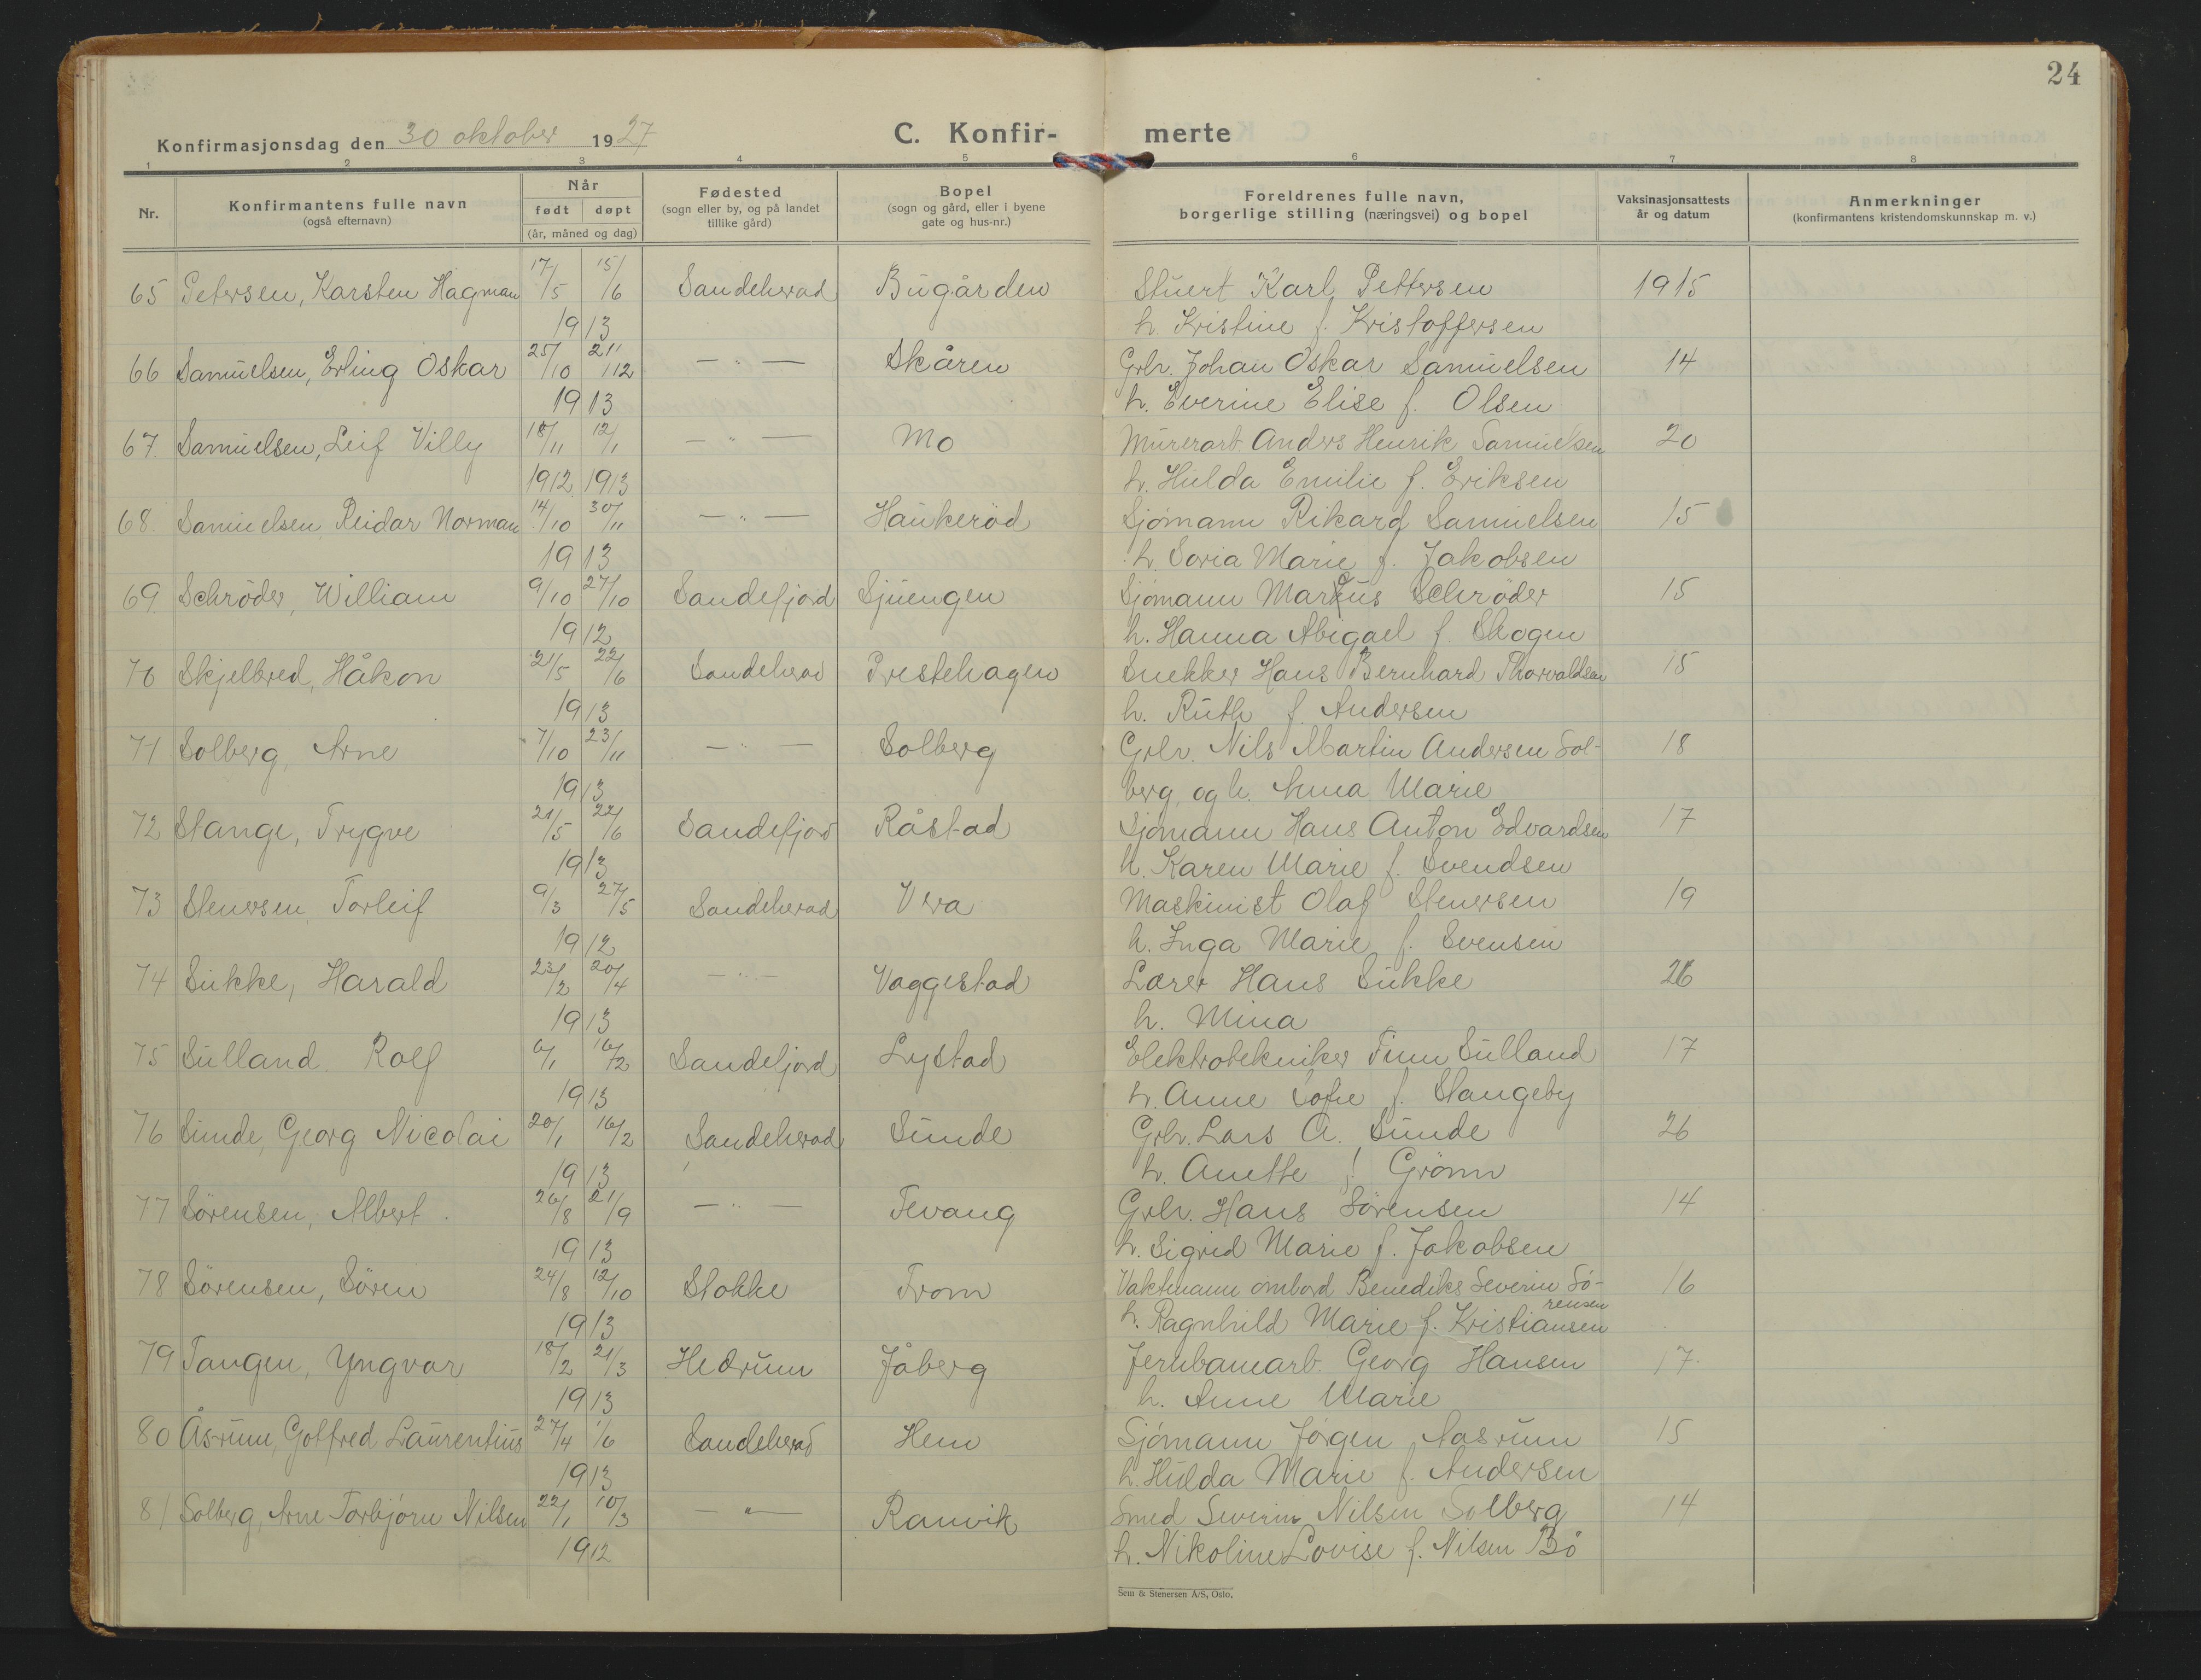 24
Konfirmasjonsdag den 30 oktober 1927 C. Konfir- merte
1 2 3 4 5 6 7 8
Nr. Konfirmantens fulle navn (også efternavn) Når født døpt (år, måned og dag) Fødested (sogn eller by, og på landet tillike gård) Bopel (sogn og gård, eller i byene gate og hus-nr.) Foreldrenes fulle navn, borgerlige stilling (næringsvei) og bopel Vaksinasjonsattests år og datum Anmerkninger (konfirmantens kristendomskunnskap m. v.)
65 Petersen, Karsten Hagman 17/5 15/6 Sandeherad Bugården Stuert Karl Pettersen 1915
1913 h. Kristine f. Kristoffersen
66 Samuelsen, Erling Oskar 25/10 21/12 — " — Skåren Grbr. Johan Oskar Samuelsen 14
1913 h. Everine Elise f. Olsen
67. Samuelsen, Leif Villy 18/11 12/1 — " — Mo Murerarb. Anders Henrik Samuelsen 20
1912 1913 h. Hulda Emilie f. Eriksen
68. Samuelsen Reidar Norman 14/10 30/11 — " — Haukeröd Sjömann Rikard Samuelsen 15
1913 h. Soria Marie f. Jakobsen
69. Schröder, William 9/10 27/10 Sandefjord Sjuengen Sjömann Marcus Schröder 15
1912 h. Hanna Abigael f. Skogen
70 Skjelbred, Håkon 21/5 22/6 Sandeherad Prestehagen Snekker Hans Bernhard Thorvaldsen 15
1913 h. Ruth f. Andersen
71 Solberg, Arne 7/10 23/11 — " — Solberg Grbr. Nils Martin Andersen Sol- 18
1913 berg, og h. Anna Marie
72 Stange, Trygve 21/5 22/6 Sandefjord Råstad Sjömann Hans Anton Edvardsen 17
1913 h. Karen Marie f. Svendsen
73 Stenersen, Torleif 9/3 27/5 Sandeherad Vera Maskinist Olaf Stenersen 19
1912 h. Inga Marie f. Svensen
74 Sukke, Harald 23/2 20/4 — " — Vaggestad Lærer Hans Sukke 26
1913 h. Mina
75 Sulland Rolf 6/1 16/2 Sandefjord Lystad Elektrotekniker Finn Sulland 17
1913 h. Anne Sofie f. Stangeby
76 Sunde, Georg Nicolai 20/1 16/2 Sandeherad Sunde Grbr. Lars A. Sunde 26
1913 h. Anette f. Grönn
77 Sörensen, Albert. 26/8 21/9 — " — Tevang Grbr. Hans Sörensen 14
1913 h. Sigrid Marie f. Jakobsen
78 Sörensen, Sören 24/8 12/10 Stokke From Vaktmann ombord Benediks Severin Sö- 16
rensen
1913 h. Ragnhild Marie f. Kristiansen
79 Tangen, Yngvar 18/2 21/3 Hedrum Jåberg Jernbanearb. Georg Hansen 17.
1913 h. Anne Marie
80 Åsrum, Gotfred Laurentius 27/4 1/6 Sandeherad Hem Sjömann Jörgen Aasrum 15
1913 h. Hulda Marie f. Andersen
81 Solberg, Arne Torbjörn Nilsen 22/1 10/3 — " — Ranvik Smed Severin Nilsen Solberg 14
1912 h. Nikoline Lovise f. Nilsen Bö
Sem & Stenersen A/S, Oslo.